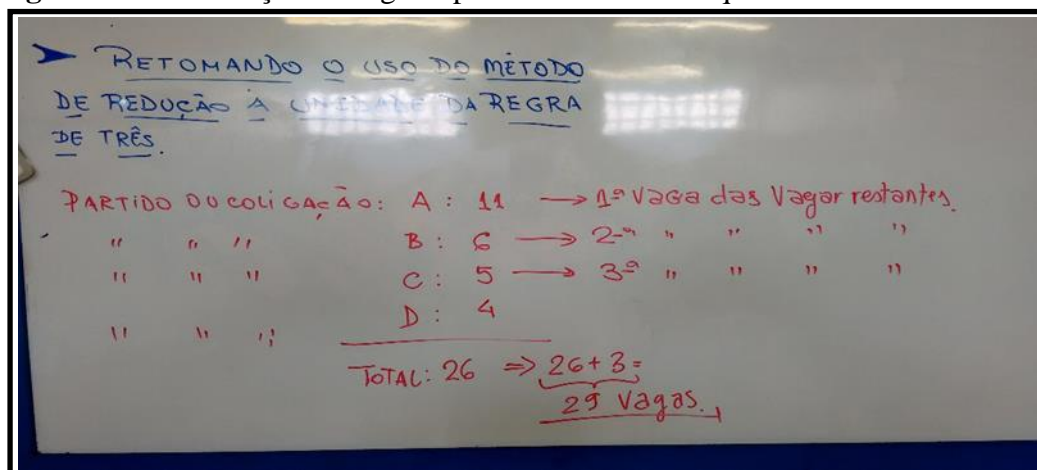 ➤ RETOMANDO O USO DO MÉTODO
DE REDUÇÃO À UNIDADE DA REGRA
DE TRÊS.
PARTIDO OU COLIGAÇÃO: A : 11 → 1ª Vaga das Vagar restantes.
" " " B : 6 → 2ª " " " "
" " " C : 5 → 3ª " " " "
" " " D : 4
TOTAL: 26 ⇒ 26 + 3 =
29 Vagas.